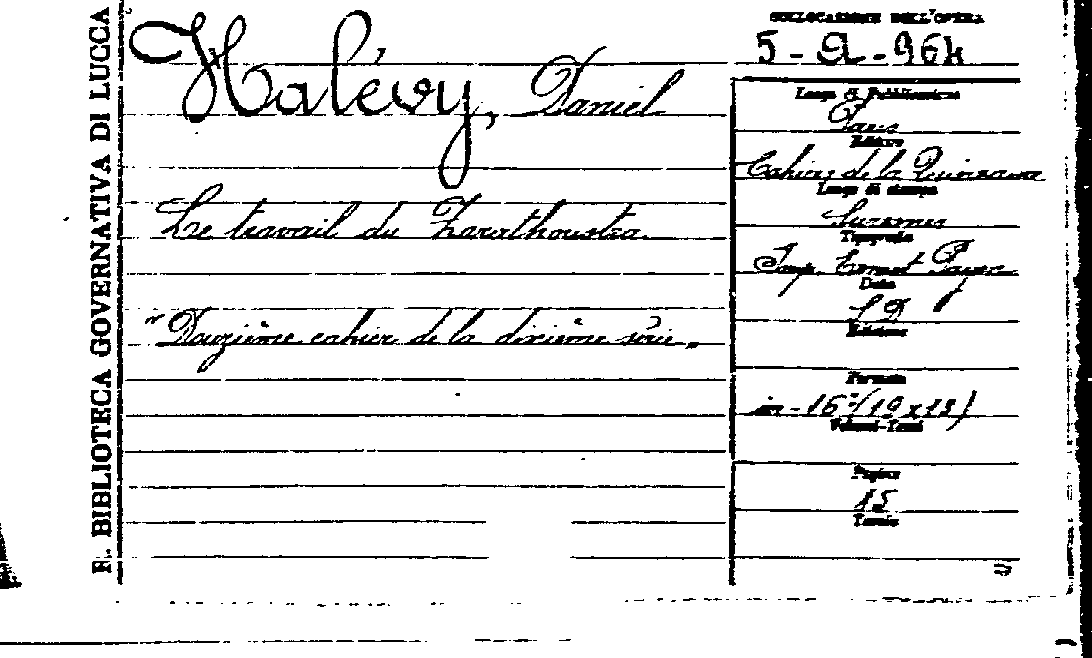 R. BIBLIOTECA GOVERNATIVA DI LUCCA
Halévy, Daniel
Le travail du Zarathoustra
"Douzième cahier de la dixième série„
COLLOCAZIONE DELL'OPERA
5-a-964
Luogo di Pubblicazione
Paris
Editore
Cahiers de la Quinzaine
Luogo di stampa
Suresnes
Tipografia
Imp. Ernest Payen
Data
S D
Edizione
Formato
in-16° (19x13)
Volumi-Tomi
Pagine
Tavole